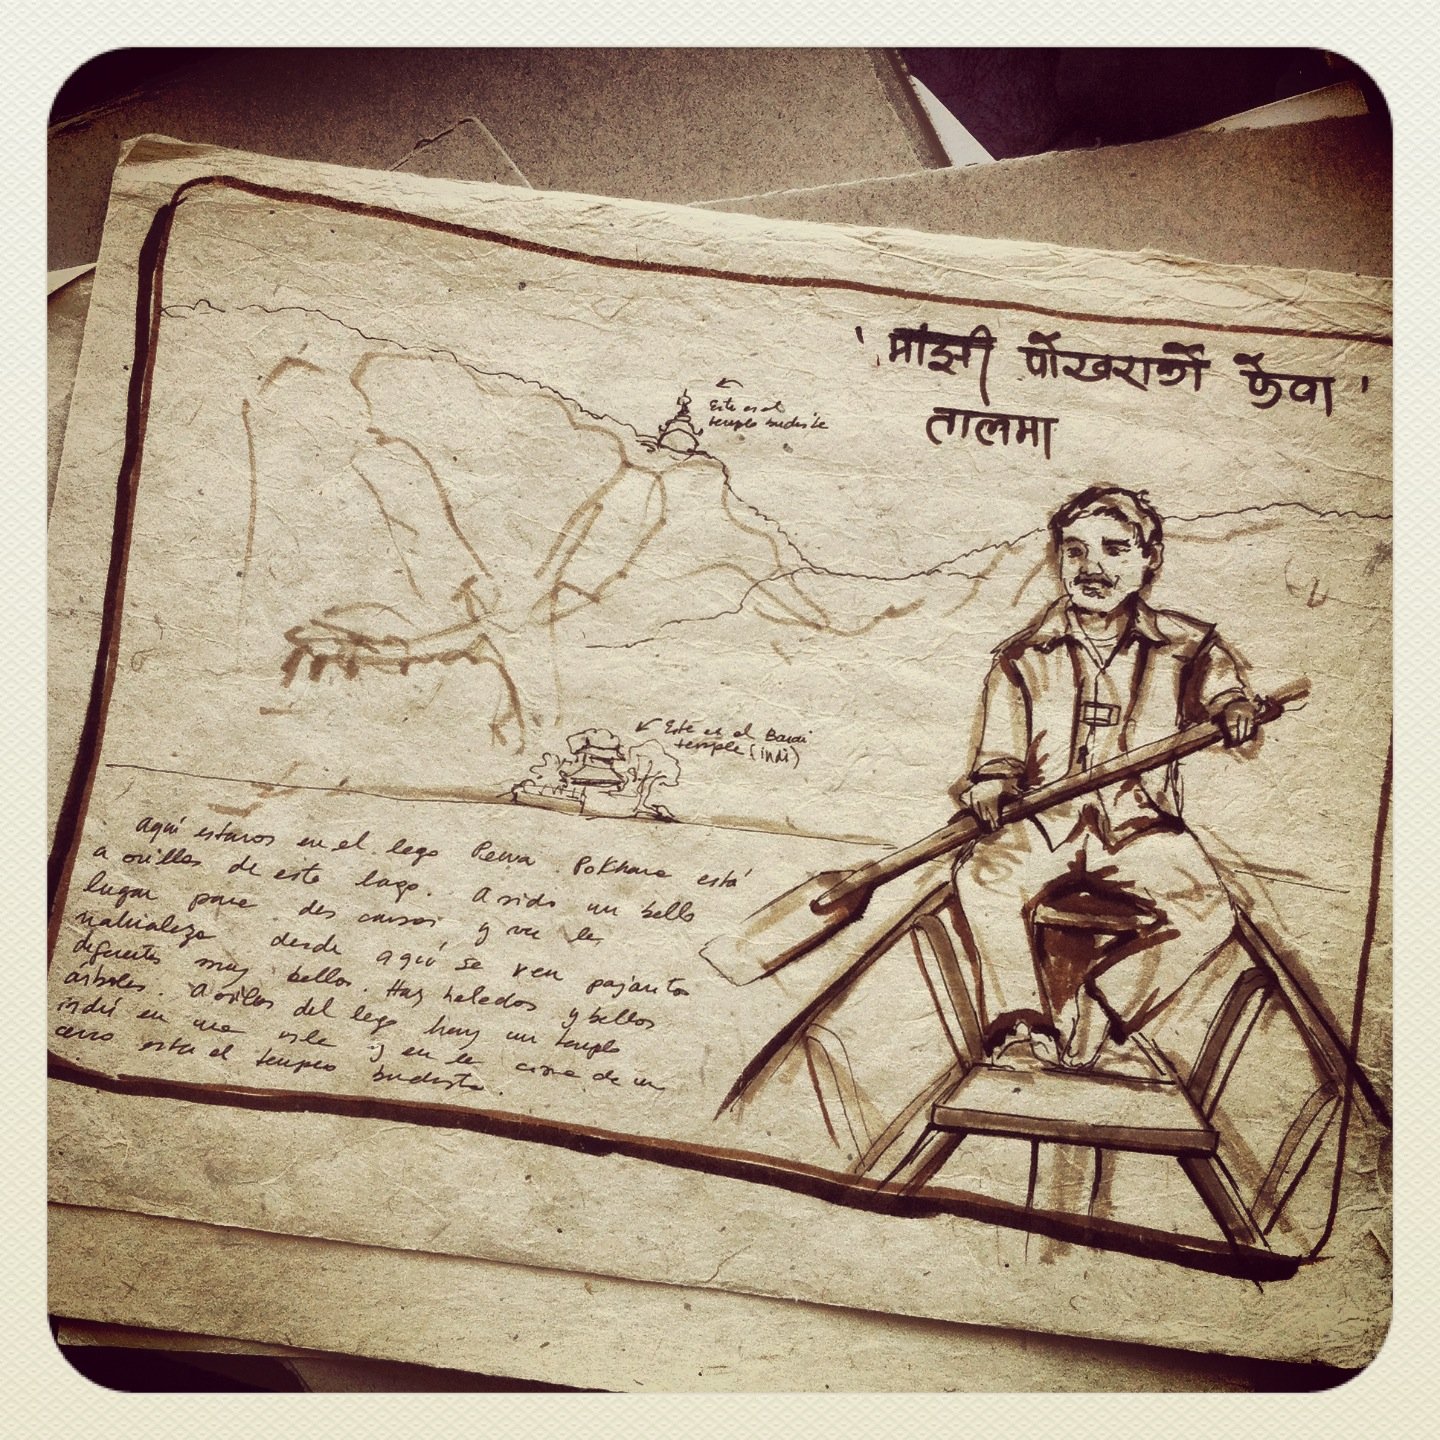 ' मांझी पोखराको फेवा '
तालमा
Este es el
templo budiste
Este es el Barai
temple (indi)
Aquí estamos en el lago Pewa. Pokhara está
a orillas de este lago. A sido un bello
lugar para descansar y ver la
naturaleza desde aquí se ven pajaritos
diferentes muy bellos. Hay helados y bellos
árboles. A orillas del lago hay un templo
indú en una isla y en la cima de un
cerro esta el templo budista.